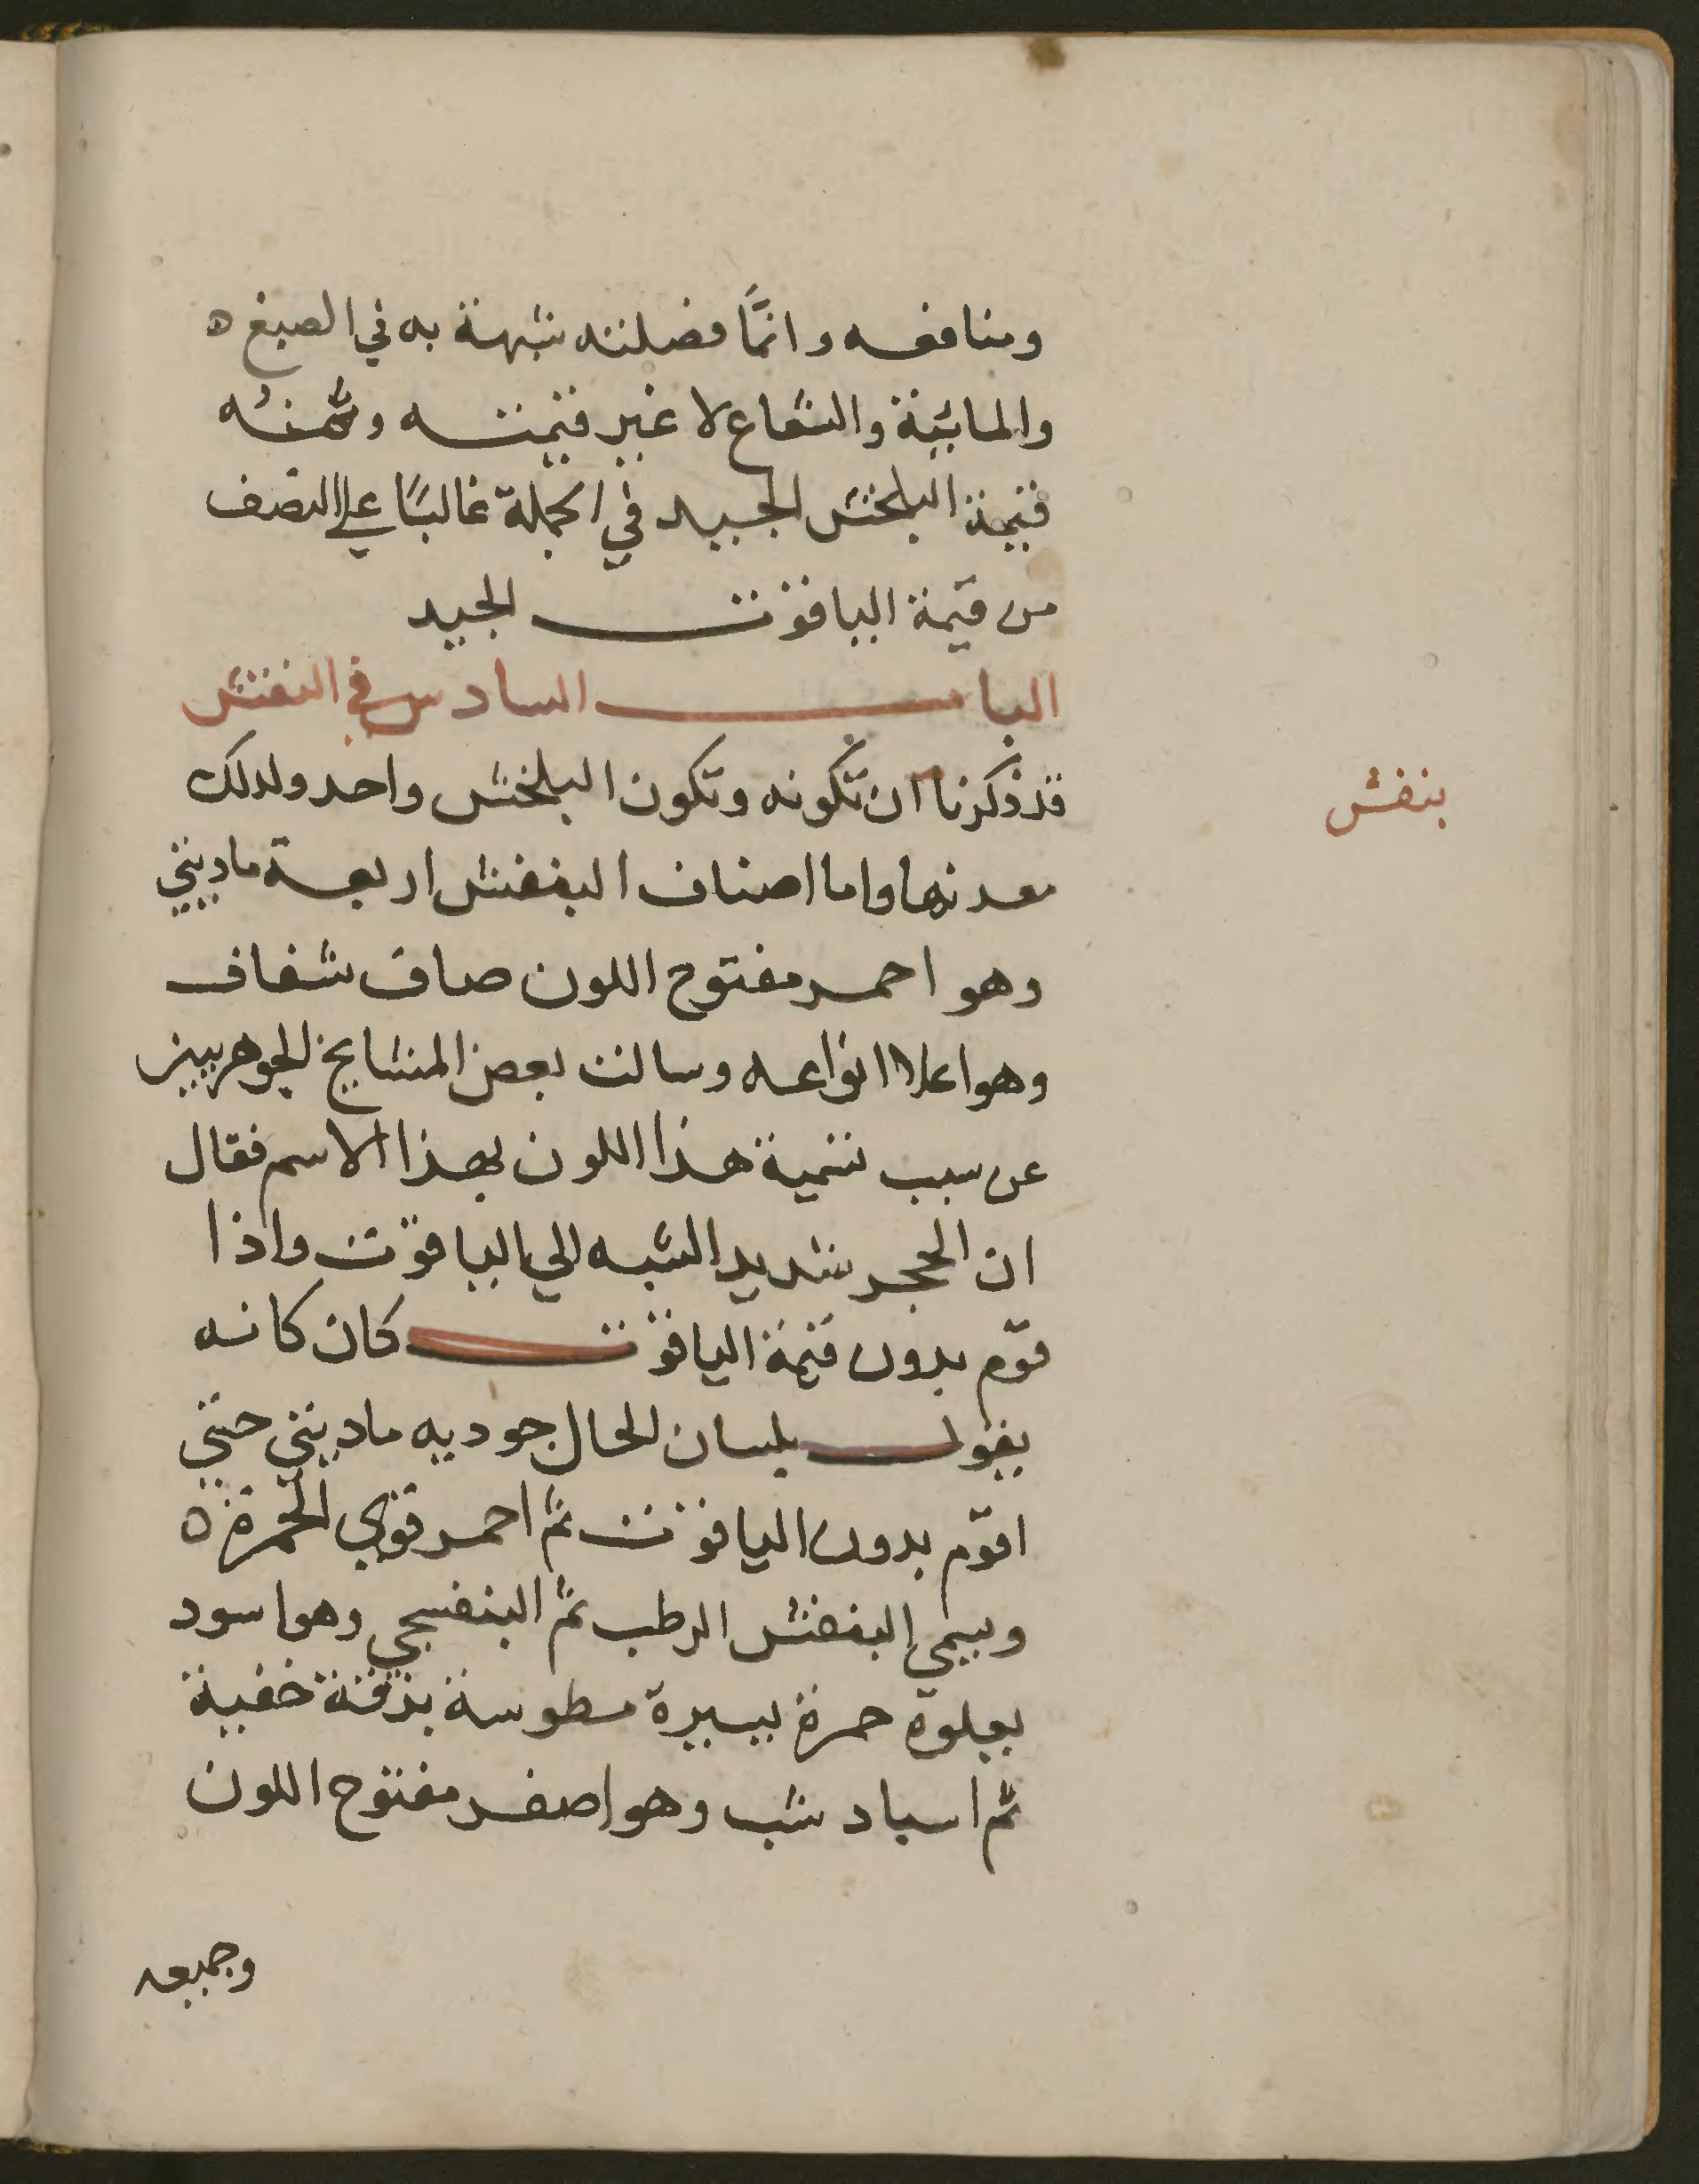 ومنافعه وانمَّا فضلته شبهة به في الصبغ ه
والمائية والشعاع لا غير قيمته وثمنه
قيمة البلخش الجيد في الجملة غالبًا علي النصف
من قيمة الياقوت الجيد
الباب السادس في البنفش
بنفش
قد ذكرنا ان تكونه وتكون البلخش واحد ولدلك
معدنهما واما اصناف البنفش اربعة ماديني
وهو احمر مفتوح اللون صاف شفاف
وهو اعلا انواعه وسالت بعض المشايخ الجوهريين
عن سبب تسمية هذا اللون بهذا الاسم فقال
ان الحجر شديد الشبه الي الياقوت واذا
قوّم بدون قيمة الياقوت كان كانه
يقول بلسان الحال جوديه ماديني حتي
اقوّم بدون الياقوت ثم احمر قوي الحمرة ه
ويسمي البنفش الرطب ثم البنفسجي وهو اسود
يعلوه حمرة يسيرة مطوسة بزرقة خفية
ثم اسباد شب وهو اصفر مفتوح اللون
وجميعه